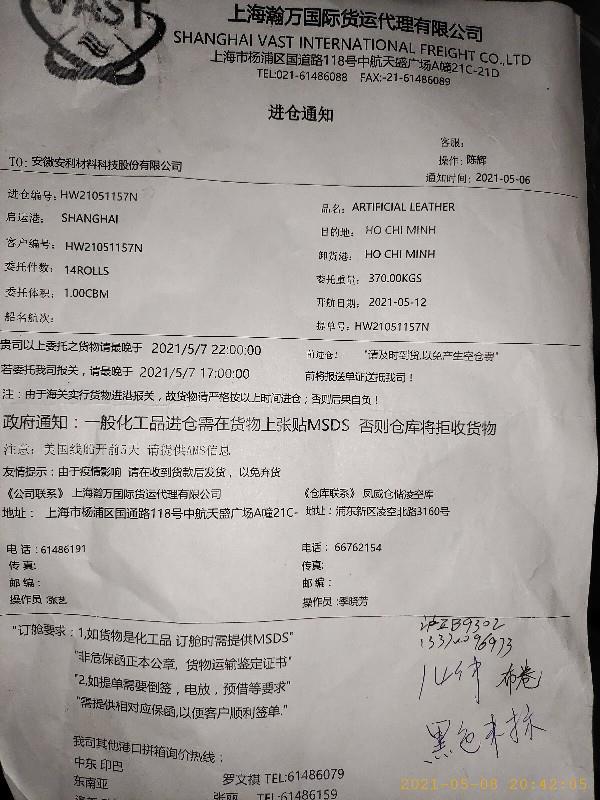 VAST
上海瀚万国际货运代理有限公司
SHANGHAI VAST INTERNATIONAL FREIGHT CO.,LTD
上海市杨浦区国道路118号中航天盛广场A幢21C-21D
TEL:021-61486088 FAX:-21-61486089
进仓通知
客服:
TO: 安徽安利材料科技股份有限公司
操作: 陈辉
通知时间: 2021-05-06
进仓编号: HW21051157N
品名: ARTIFICIAL LEATHER
启运港: SHANGHAI
目的地: HO CHI MINH
客户编号: HW21051157N
卸货港: HO CHI MINH
委托件数: 14ROLLS
委托重量: 370.00KGS
委托体积: 1.00CBM
开航日期: 2021-05-12
船名航次:
提单号: HW21051157N
贵司以上委托之货物请最晚于 2021/5/7 22:00:00 前进仓! "请及时到货,以免产生空仓费"
若委托我司报关，请最晚于 2021/5/7 17:00:00 前将报送单证送抵我司！
注：由于海关实行货物进港报关，故货物请严格按以上时间进仓；否则后果自负！
政府通知：一般化工品进仓需在货物上张贴MSDS 否则仓库将拒收货物
注意：美国线船开前5天 请提供AMS信息
友情提示：由于疫情影响 请在收到货款后发货，以免弃货
《公司联系》上海瀚万国际货运代理有限公司
《仓库联系》 凤威仓储凌空库
地址： 上海市杨浦区国通路118号中航天盛广场A幢21C-
地址： 浦东新区凌空北路3160号
电话：61486191
电话： 66762154
传真:
传真:
邮编：
邮编：
操作员:张艺
操作员:季晓芳
"订舱要求：1,如货物是化工品 订舱时需提供MSDS"
"非危保函正本公章，货物运输鉴定证书"
"2,如提单需要倒签，电放，预借等要求"
"需提供相对应保函,以便客户顺利签单."
布卷
黑色
我司其他港口拼箱询价热线：
中东 印巴
罗文祺 TEL:61486079
东南亚
张丽 TEL:61486159
2021-05-08 20:42:05